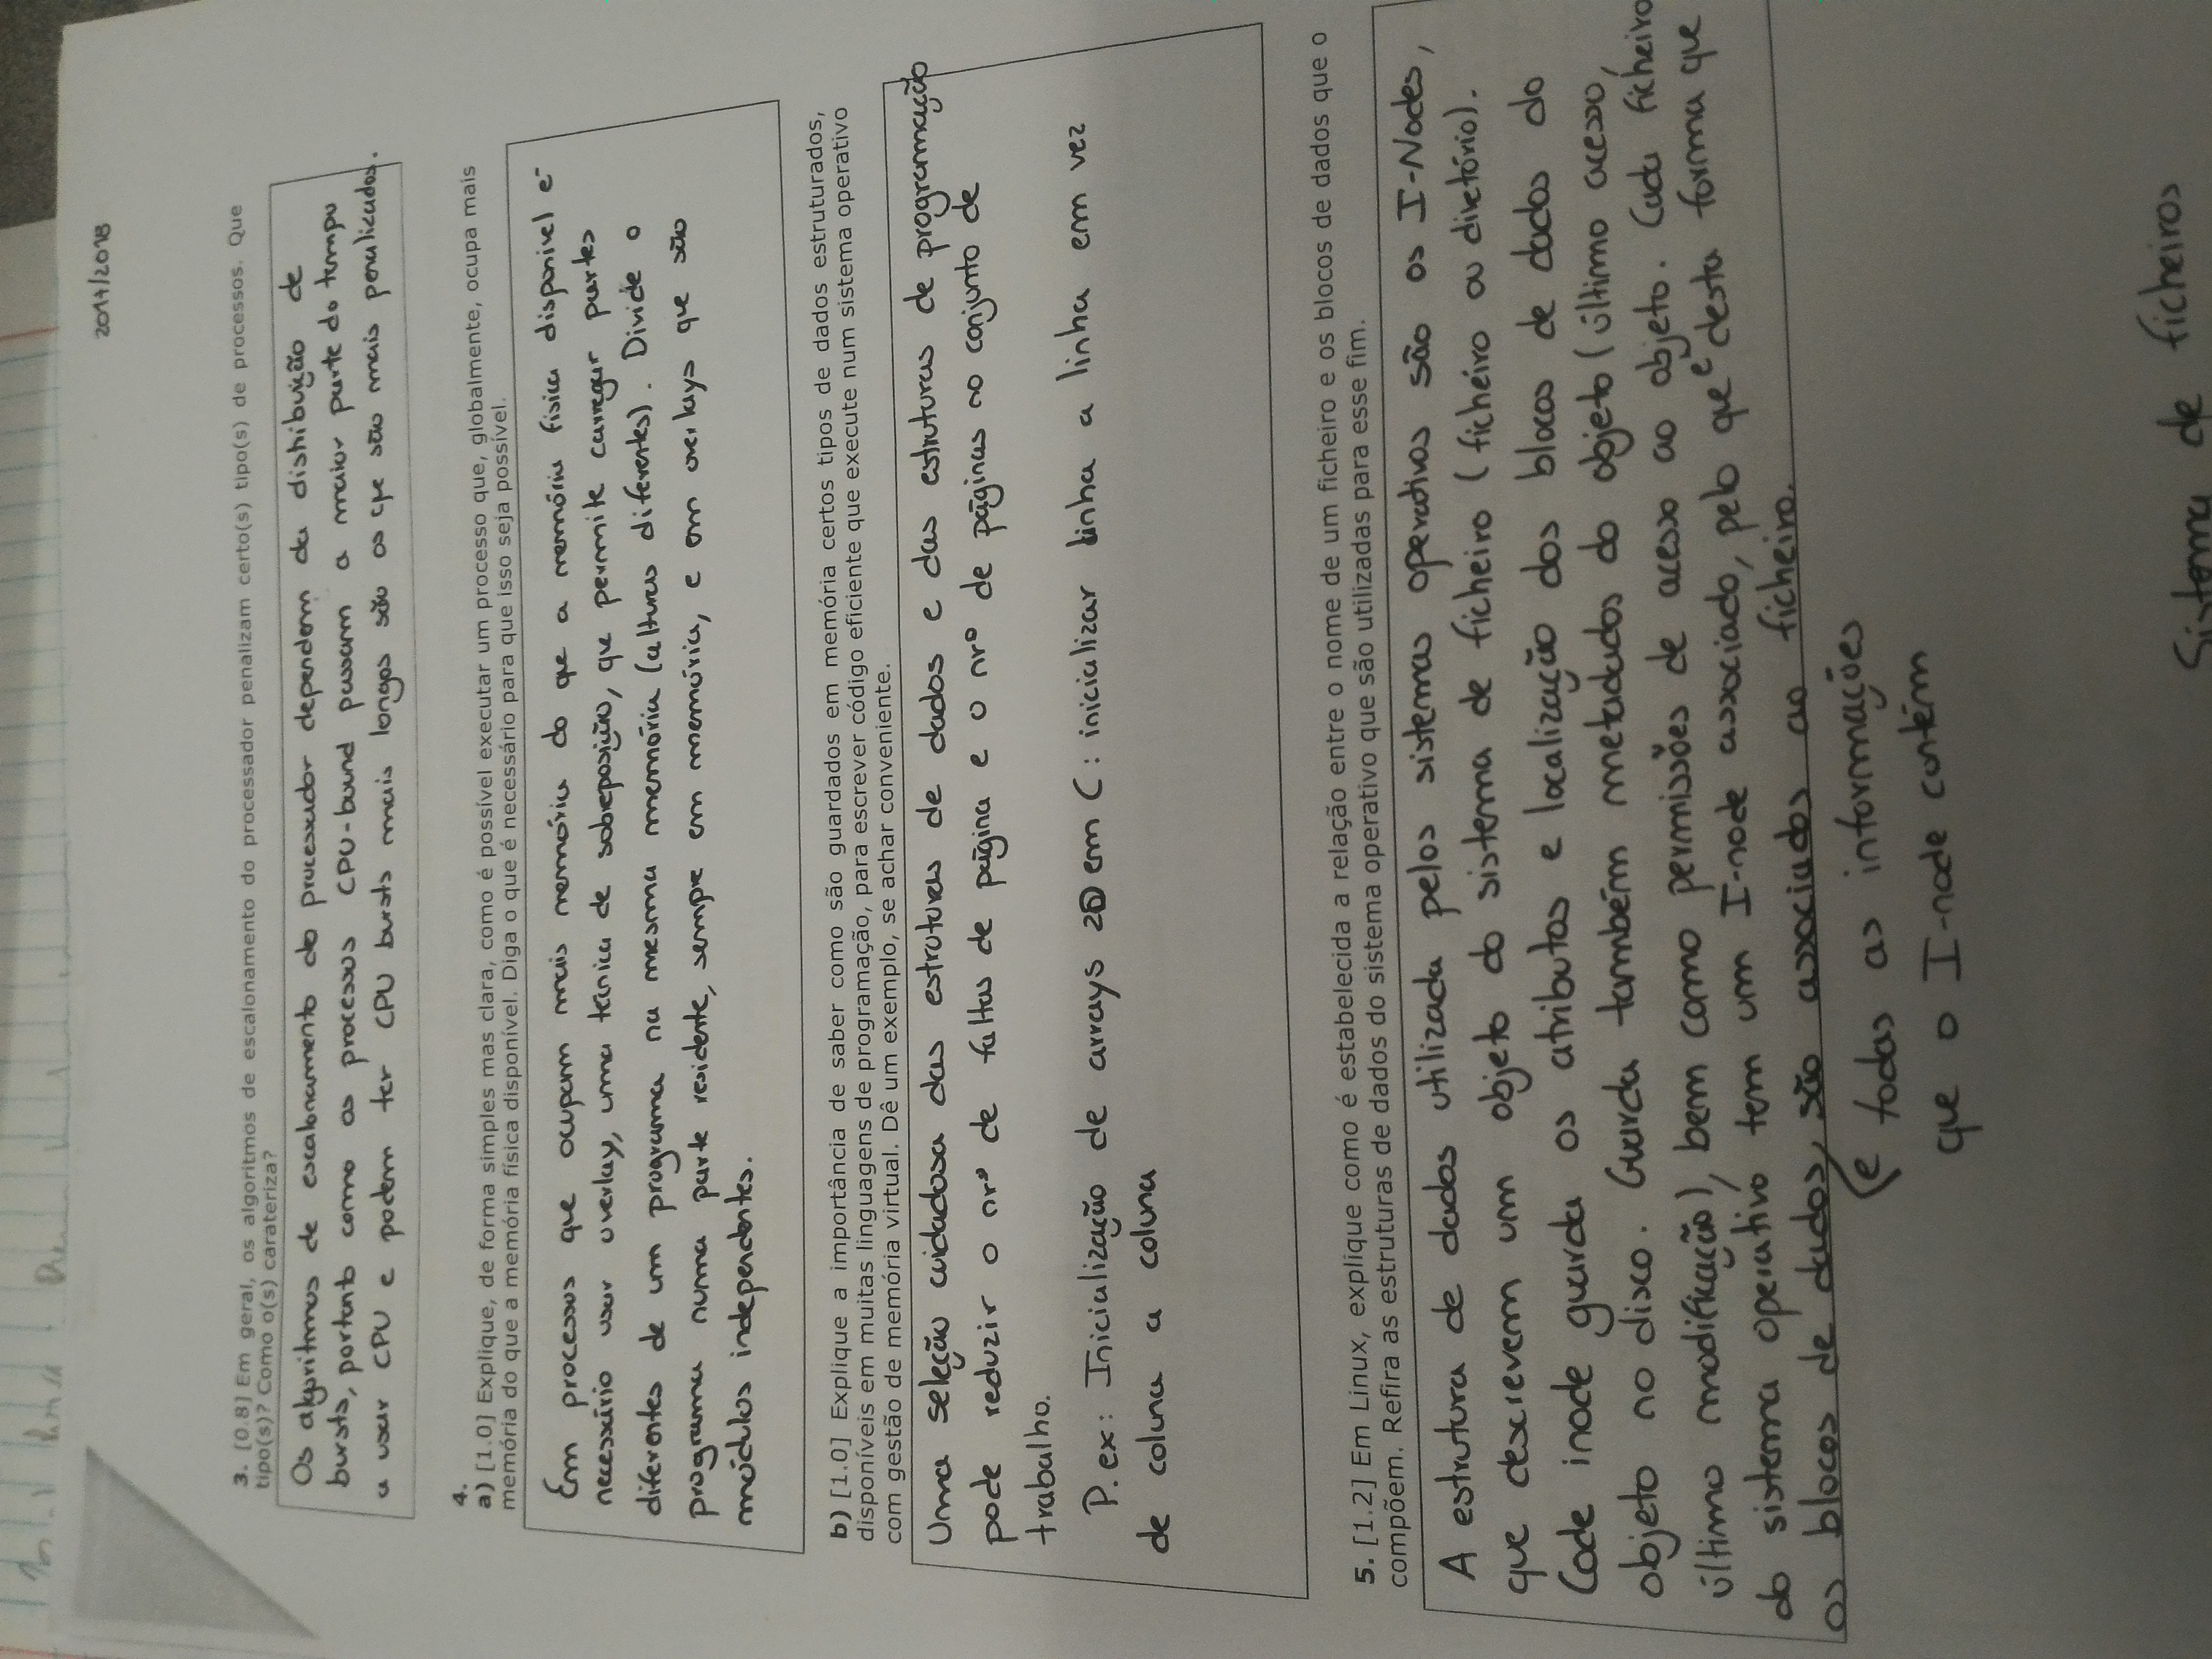 2017/2018
3. [0.8] Em geral, os algoritmos de escalonamento do processador penalizam certo(s) tipo(s) de processos. Que
tipo(s)? Como o(s) carateriza?
Os algoritmos de escalonamento do processador dependem da distibuição de
bursts, portanto como os processos CPU-bound passam a maior parte do tempo
a usar CPU e podem ter CPU bursts mais longos são os que são mais penalizados.
4.
a) [1.0] Explique, de forma simples mas clara, como é possível executar um processo que, globalmente, ocupa mais
memória do que a memória física disponível. Diga o que é necessário para que isso seja possível.
Em processos que ocupam mais memória do que a memória física disponível é
necessário usar overlay, uma técnica de sobreposição, que permite carregar partes
diferentes de um programa na mesma memória (alturas diferentes). Divide o
programa numa parte residente, sempre em memória, e em overlays que são
módulos independentes.
b) [1.0] Explique a importância de saber como são guardados em memória certos tipos de dados estruturados,
disponíveis em muitas linguagens de programação, para escrever código eficiente que execute num sistema operativo
com gestão de memória virtual. Dê um exemplo, se achar conveniente.
Uma seleção cuidadosa das estruturas de dados e das estruturas de programação
pode reduzir o nrº de faltas de página e o nrº de páginas no conjunto de
trabalho.
P.ex: Inicialização de arrays 2D em C: inicializar linha a linha em vez
de coluna a coluna
5. [1.2] Em Linux, explique como é estabelecida a relação entre o nome de um ficheiro e os blocos de dados que o
compõem. Refira as estruturas de dados do sistema operativo que são utilizadas para esse fim.
A estrutura de dados utilizada pelos sistemas operativos são os I-Nodes,
que descrevem um objeto do sistema de ficheiro (ficheiro ou diretório).
Cade inode guarda os atributos e localização dos blocos de dados do
objeto no disco. Guarda também metadados do objeto (último acesso,
último modificação), bem como permissões de acesso ao objeto. Cada ficheiro
do sistema operativo tem um I-node associado, pelo que é desta forma que
os blocos de dados, são associados ao ficheiro.
(e todas as informações
que o I-node contém
Sistema de ficheiros